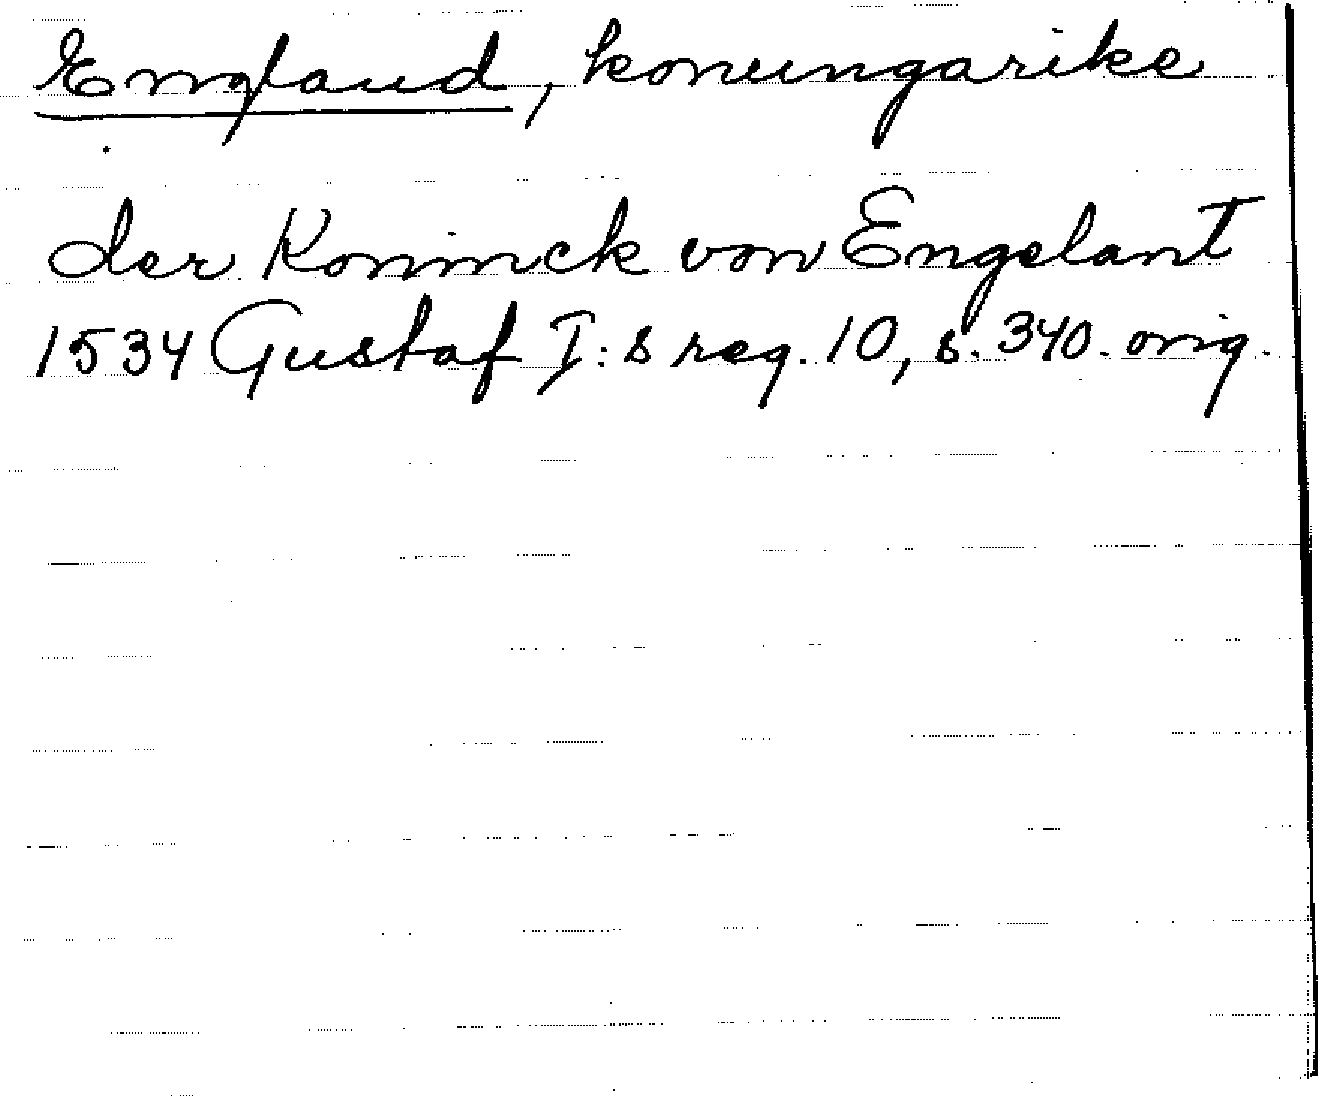 England, konungarike
der Konninck von Engelant
1534 Gustaf I:s reg. 10, s. 340. orig.